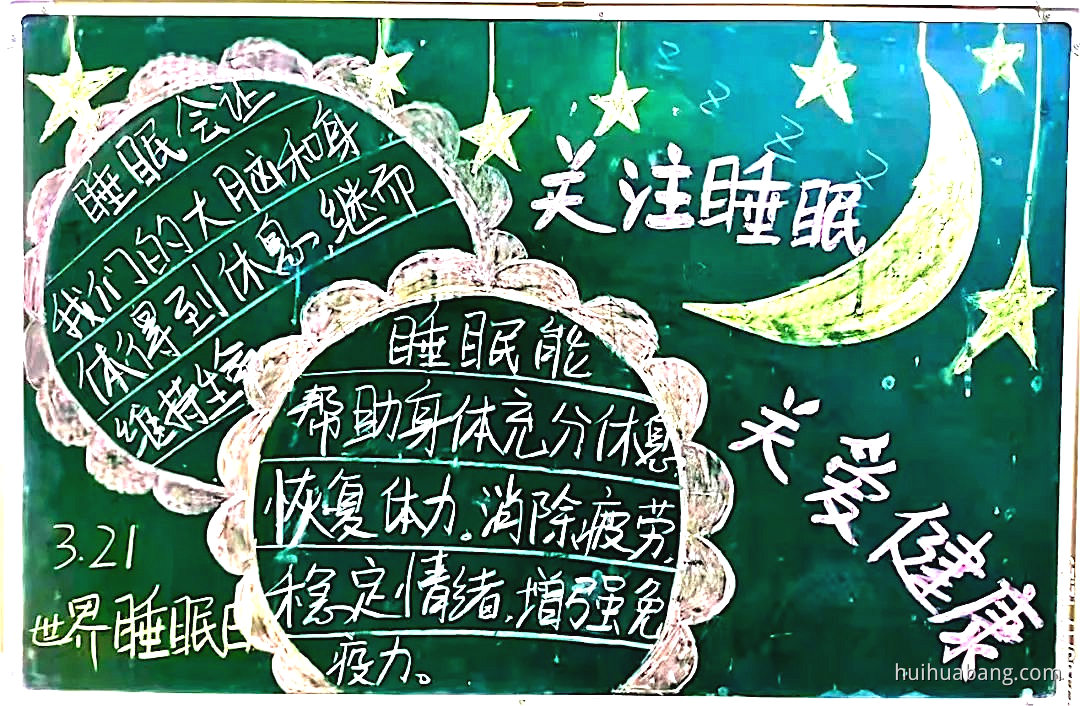 睡眠会让
我们的大脑和身
体得到休息,继而
维持生
睡眠能
帮助身体充分休息
恢复体力。消除疲劳,
稳定情绪,增强免
疫力。
关注睡眠
关爱健康
3.21
世界睡眠日
huihuabang.com